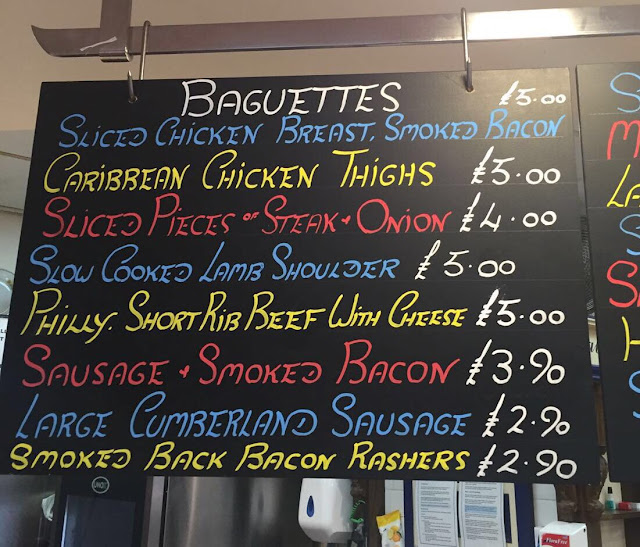 BAGUETTES £5.00
SLICED CHICKEN BREAST, SMOKED BACON
CARIBBEAN CHICKEN THIGHS £5.00
SLICED PIECES OF STEAK & ONION £4.00
SLOW COOKED LAMB SHOULDER £5.00
PHILLY. SHORT RIB BEEF WITH CHEESE £5.00
SAUSAGE & SMOKED BACON £3.90
LARGE CUMBERLAND SAUSAGE £2.90
SMOKED BACK BACON RASHERS £2.90